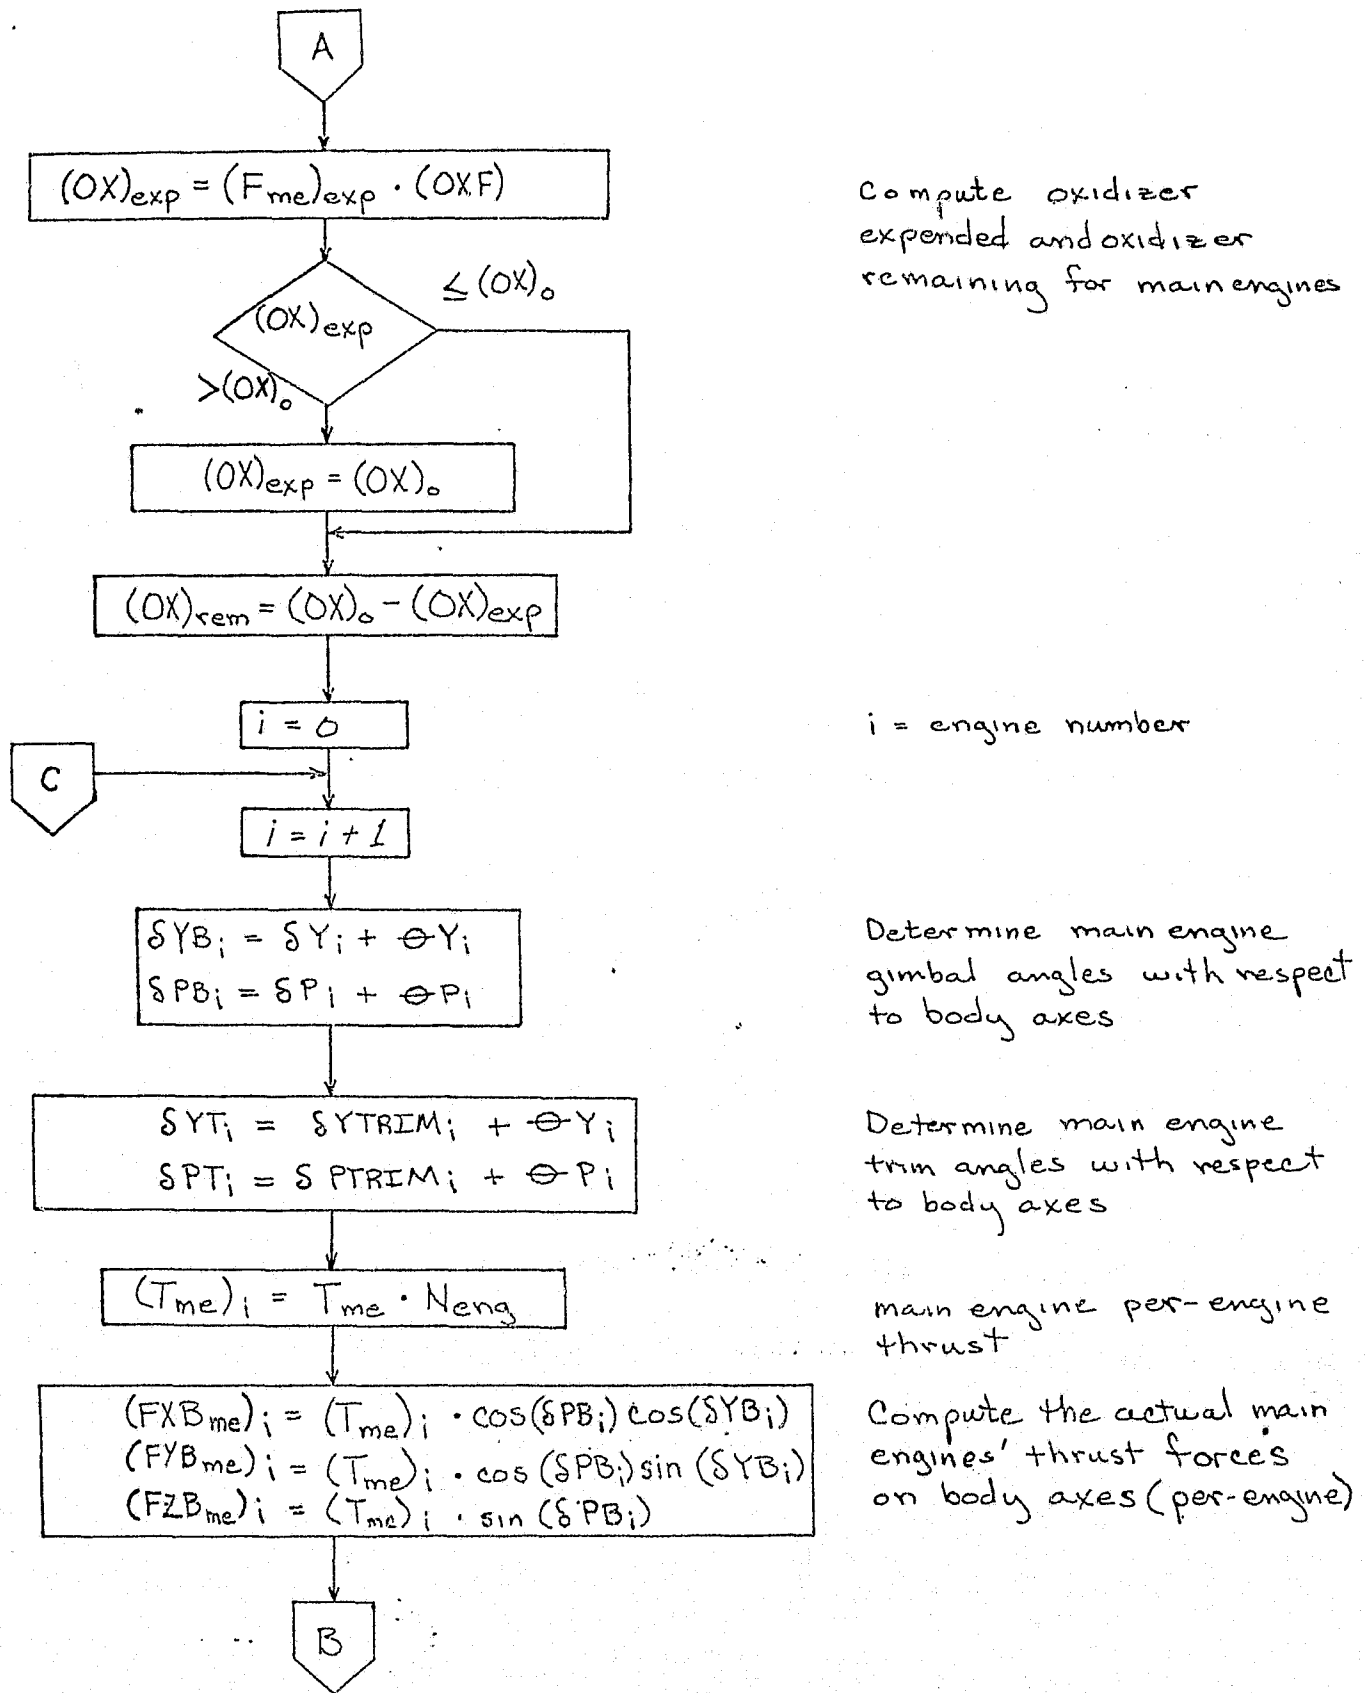 A
(OX)exp = (Fme)exp · (OXF)
Compute oxidizer
expended and oxidizer
remaining for main engines
≤ (OX)o
(OX)exp
>(OX)o
(OX)exp = (OX)o
(OX)rem = (OX)o - (OX)exp
i = 0
i = engine number
C
i = i + 1
δYBi = δYi + ΘYi
δPBi = δPi + ΘPi
Determine main engine
gimbal angles with respect
to body axes
δYTi = δYTRIMi + ΘYi
δPTi = δPTRIMi + ΘPi
Determine main engine
trim angles with respect
to body axes
(Tme)i = Tme · Neng
main engine per-engine
thrust
(FXBme)i = (Tme)i · cos(δPBi) cos(δYBi)
(FYBme)i = (Tme)i · cos (δPBi) sin (δYBi)
(FZBme)i = (Tme)i · sin (δPBi)
Compute the actual main
engines' thrust forces
on body axes (per-engine)
B